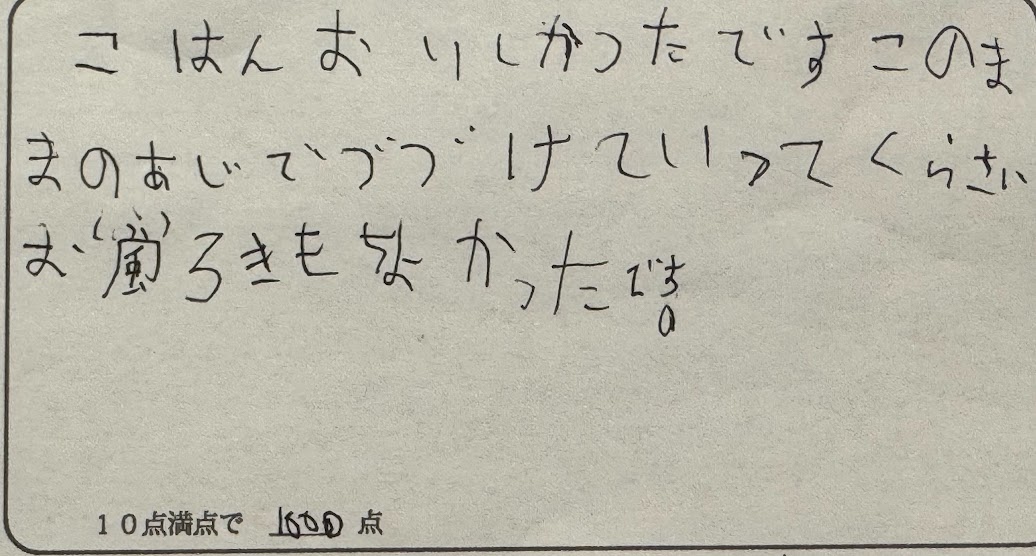 こはんおいしかったですこのま
まのあじでづづけていってくらさい
お風ろきもちよかったです。
10点満点で 1000 点